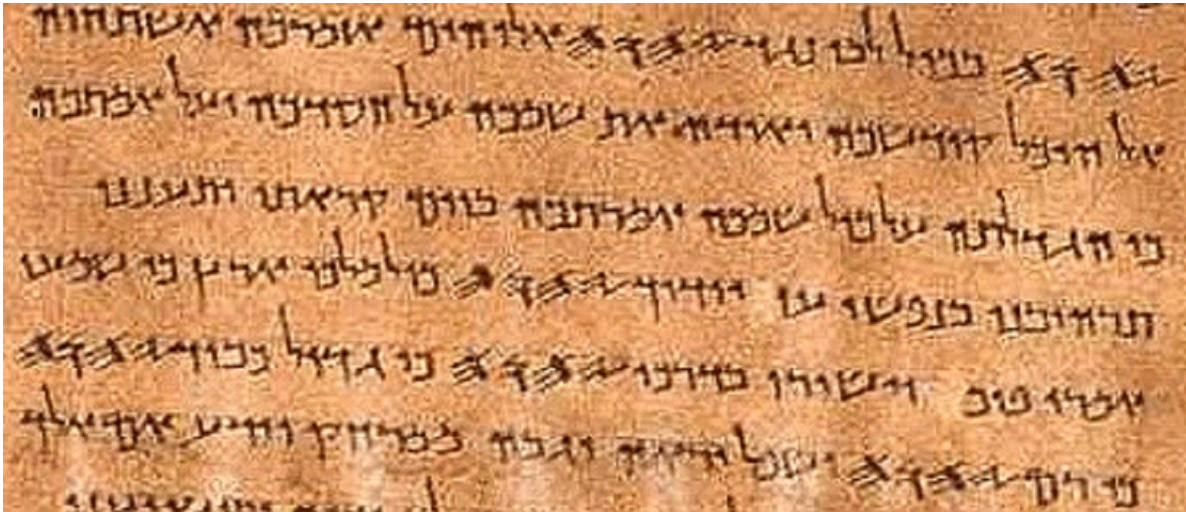 𐤉𐤄𐤅𐤄 בכול לבי נגד 𐤉𐤄𐤅𐤄 אלוהים אזמרכה אשתחוה
אל היכל קודשכה ואודה את שמכה על חסדכה ועל אמתכה
כי הגדלתה על כול שמכה אמרתכה ביום קראתי ותענני
תרהיבני בנפשי עז יודוך 𐤉𐤄𐤅𐤄 כול מלכי ארץ כי שמעו
אמרי פיך וישירו בדרכי 𐤉𐤄𐤅𐤄 כי גדול כבוד 𐤉𐤄𐤅𐤄
כי רם 𐤉𐤄𐤅𐤄 ושפל יראה וגבה ממרחק יידע אם אלך